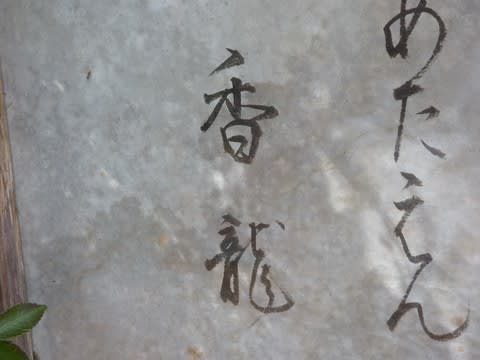 めたえん
香龍